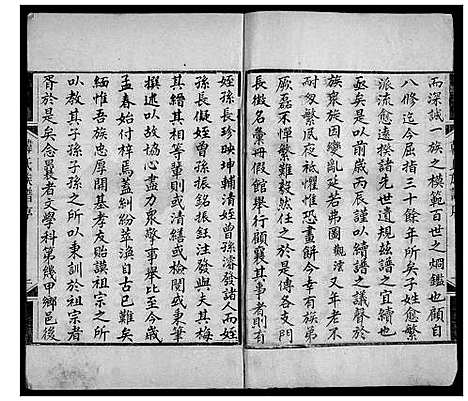 而深誠一族之模範百世之烱鑑也顧自
八修迄今屈指三十餘年所矣子姓愈繁
派流愈遠揆諸先世遺規茲譜之宜續也
亟矣是以前歲丙辰謹以續譜之議督於
族衆旋因變亂延若弗圖觀瀅又年老不
耐勞繁夙夜祗懼惟恐畫餅今幸有族弟
厥磊不憚繁難毅然任之於是傳各支門
長徵名彙冊假館舉行顧襄其事者則有
姪孫長珍映坤輔清姪曾孫濬發諸人而姪
孫長儗姪曾孫振銘振鈺注發與夫其梅
其縉其相等輩則或清繕或檢閱或秉筆
撰述以故協心盡力衆擎舉比至今歲
孟春始付梓焉蓋糾紛萃渙自古已難矣
緬惟吾族忠厚開基孝友貽謨祖宗之所
以教其子孫子孫之所以秉訓於祖宗者
胥於是矣念曩者文學科第幾甲鄉邑後